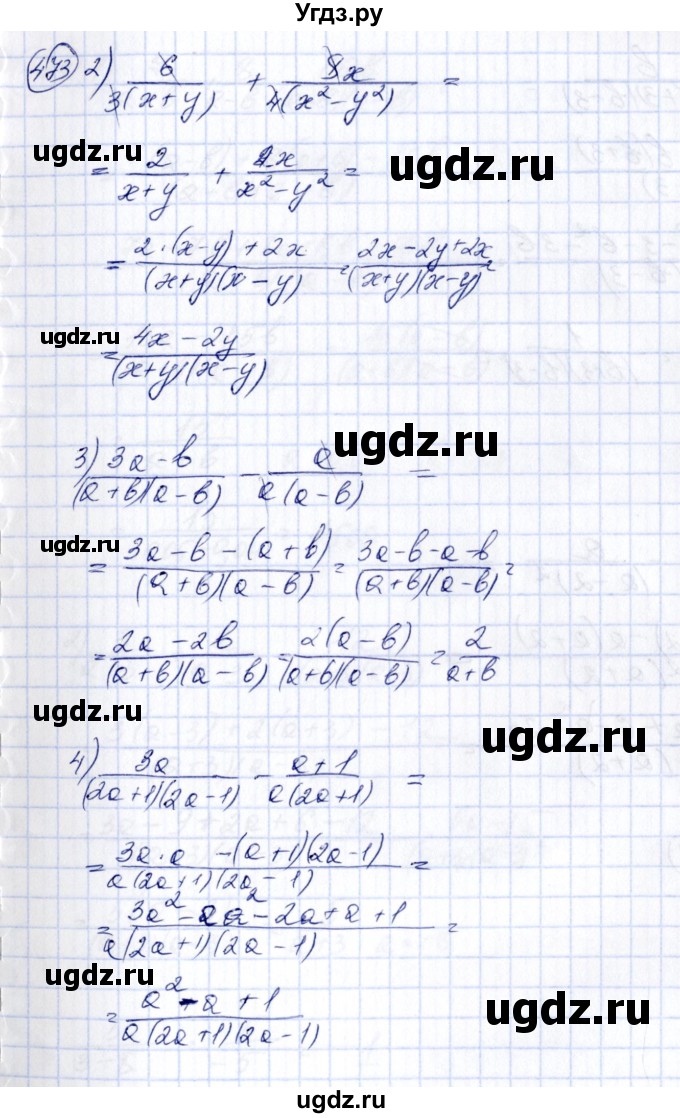 Угдз.ру
473 2) 6/3(x+y) + 8x/4(x²-y²) =
ugdz.ru
= 2/x+y + 2x/x²-y² =
ugdz.ru
= 2·(x-y)+2x/(x+y)(x-y) = 2x-2y+2x/(x+y)(x-y) =
ugdz.ru
= 4x-2y/(x+y)(x-y)
ugdz.ru
3) 3a-b/(a+b)(a-b) - a/a(a-b) =
ugdz.ru
= 3a-b-(a+b)/(a+b)(a-b) = 3a-b-a-b/(a+b)(a-b) =
= 2a-2b/(a+b)(a-b) = 2(a-b)/(a+b)(a-b) = 2/a+b
ugdz.ru
ugdz.ru
4) 3a/(2a+1)(2a-1) - a+1/a(2a+1) =
= 3a·a -(a+1)(2a-1)/a(2a+1)(2a-1) =
= 3a²-2a²-2a+a+1/a(2a+1)(2a-1) =
ugdz.ru
= a²-a+1/a(2a+1)(2a-1)
ugdz.ru
ugdz.ru